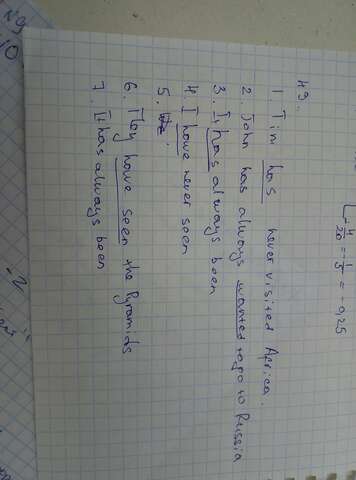 49.
1. Tim has never visited Africa.
2. John has always wanted to go to Russia
3. It has always been
4. I have never seen
5.
6. They have seen the Pyramids
7. It has always been
4/20 = -1/5 = -0,25